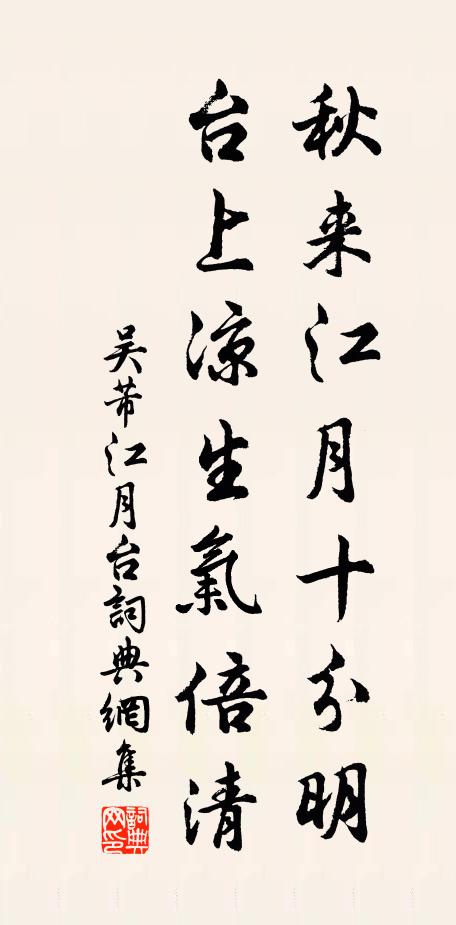 秋来江月十分明
台上凉生氣倍清
吴芾江月台詞典網集
詞典网印